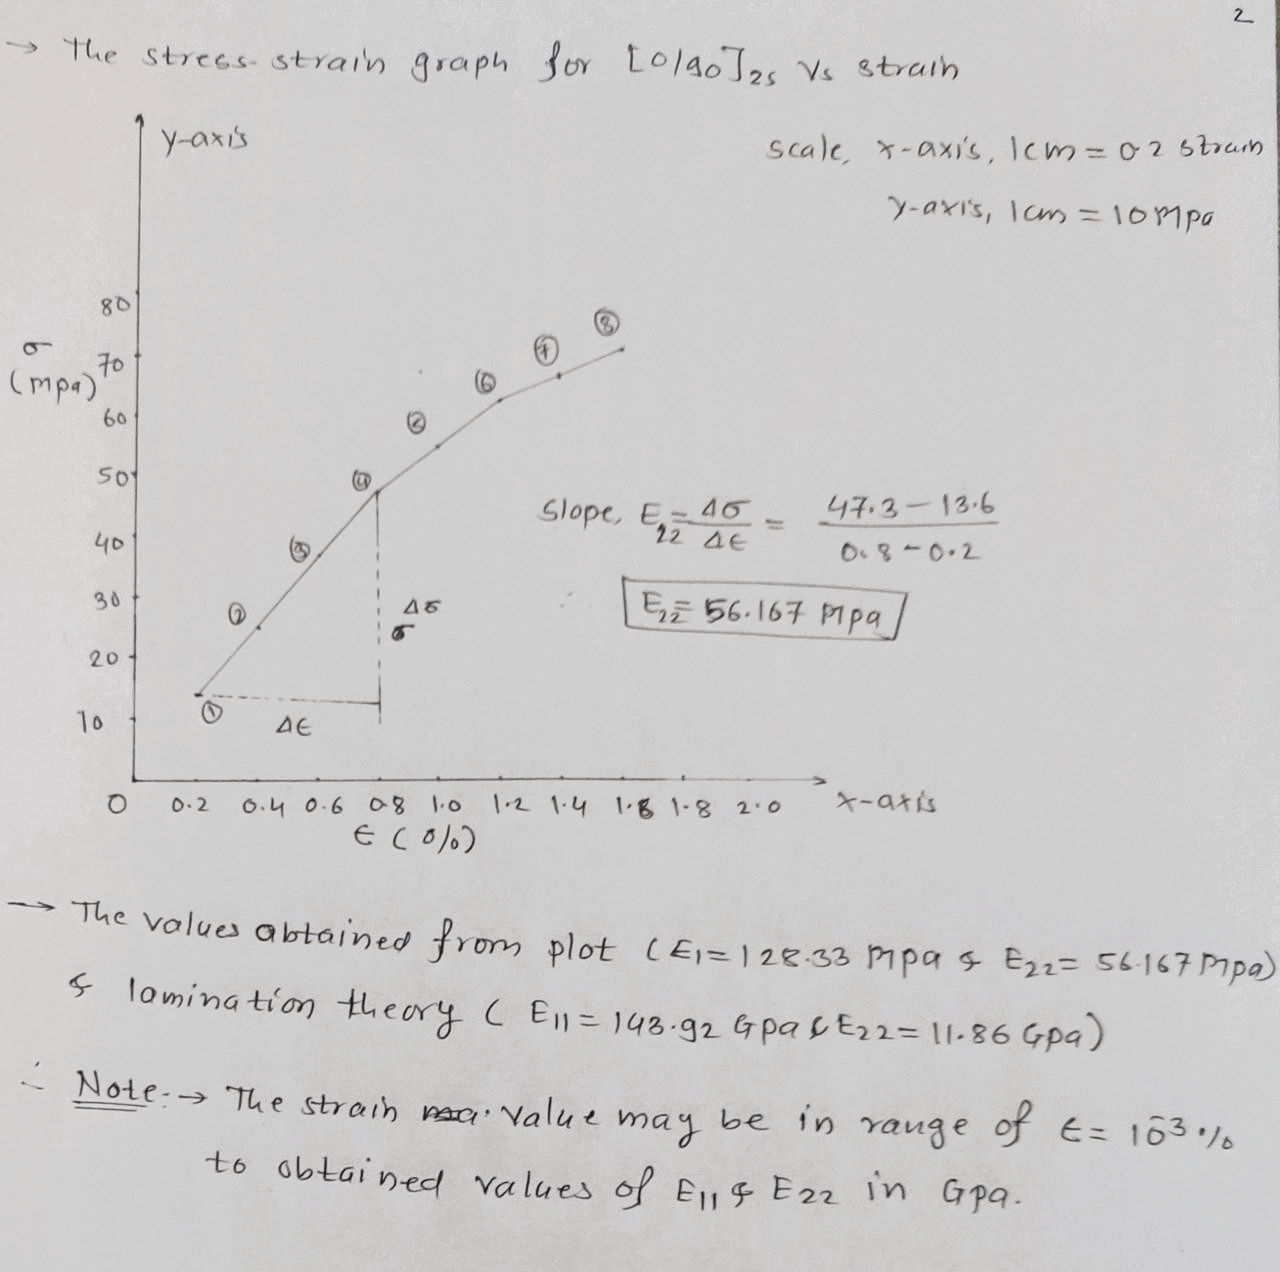 2
→ The stress-strain graph for [0/90]2s Vs strain
y-axis
scale, x-axis, 1cm = 0.2 strain
y-axis, 1cm = 10 Mpa
80
σ
(mpa)
70
60
50
40
30
20
10
0
0.2 0.4 0.6 0.8 1.0 1.2 1.4 1.6 1.8 2.0 x-axis
ϵ (%)
①
②
③
④
⑥
⑦
⑧
Δσ
σ
Δϵ
Slope, E22 = Δσ/Δϵ = 47.3 - 13.6 / 0.8 - 0.2
E22 = 56.167 Mpa
→ The values abtained from plot (E1 = 128.33 Mpa & E22 = 56.167 Mpa)
& lamination theory ( E11 = 143.92 Gpa & E22 = 11.86 Gpa)
Note:→ The strain value may be in range of ϵ = 10⁻³ %
to obtained values of E11 & E22 in Gpa.